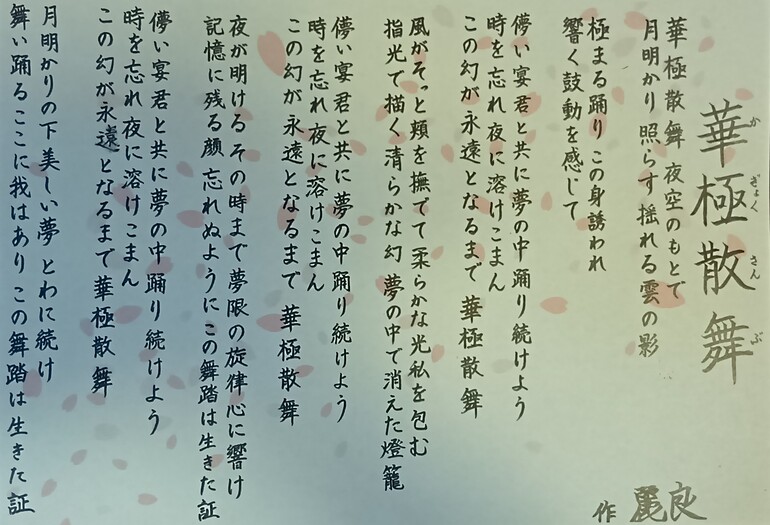 華極散舞
か ぎょく さん ぶ
作 麗良
華極散舞 夜空のもとで
月明かり 照らす 揺れる雲の影
極まる踊り この身誘われ
響く鼓動を感じて
儚い宴 君と共に 夢の中 踊り続けよう
時を忘れ 夜に溶けこまん
この幻が 永遠となるまで 華極散舞
風がそっと頬を撫でて 柔らかな光 私を包む
指光で描く 清らかな幻 夢の中で消えた燈籠
儚い宴 君と共に 夢の中 踊り続けよう
時を忘れ 夜に溶けこまん
この幻が 永遠となるまで 華極散舞
夜が明ける その時まで 夢限の旋律 心に響け
記憶に残る顔 忘れぬように この舞踏は生きた証
儚い宴 君と共に 夢の中 踊り続けよう
時を忘れ 夜に溶けこまん
この幻が 永遠となるまで 華極散舞
月明かりの下 美しい夢 とわに続け
舞い踊る ここに我はあり この舞踏は生きた証